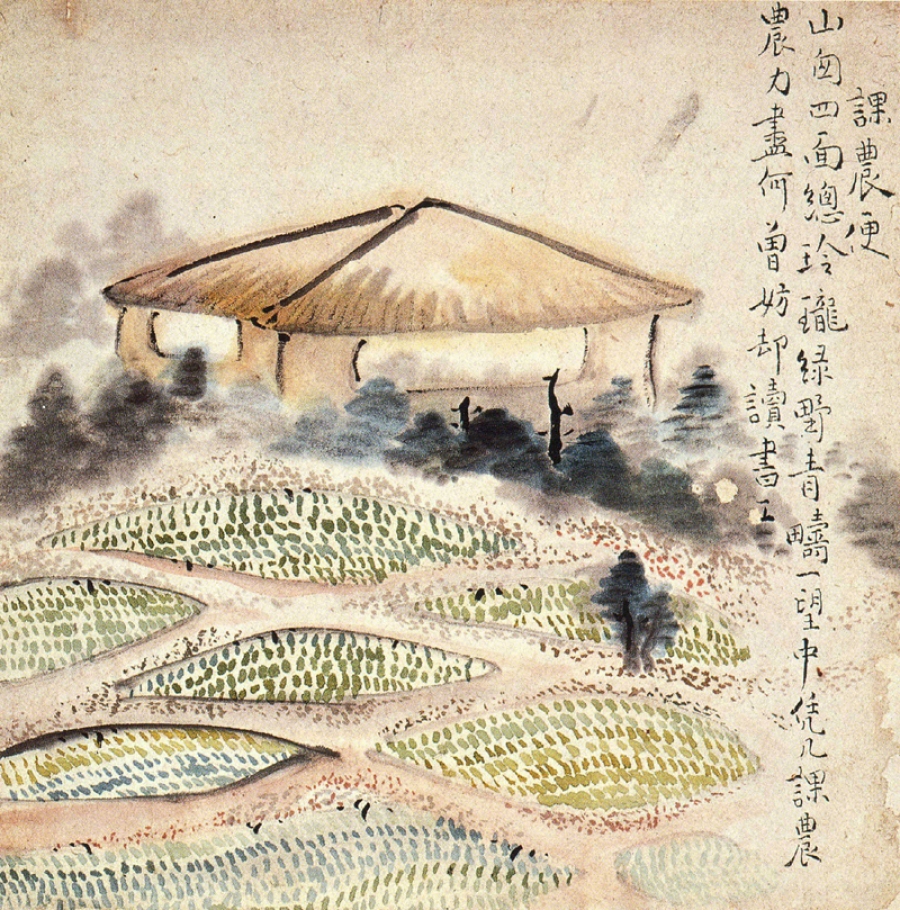 課農便
山囱四面總玲瓏緑野青疇一望中凭几課農
農力盡何曾妨却讀書工